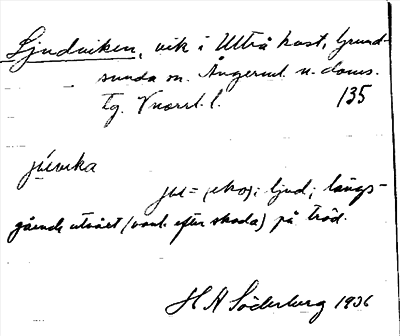 Ljudviken, vik i Ulvö hast, Grund-
sunda sn. Ångerml. n. doms.
tg. Vnorrl. l. 135
júvika
ju = (eko); ljud; längs-
gående utväxt (vanl. efter skada) på träd.
H A Söderberg 1936